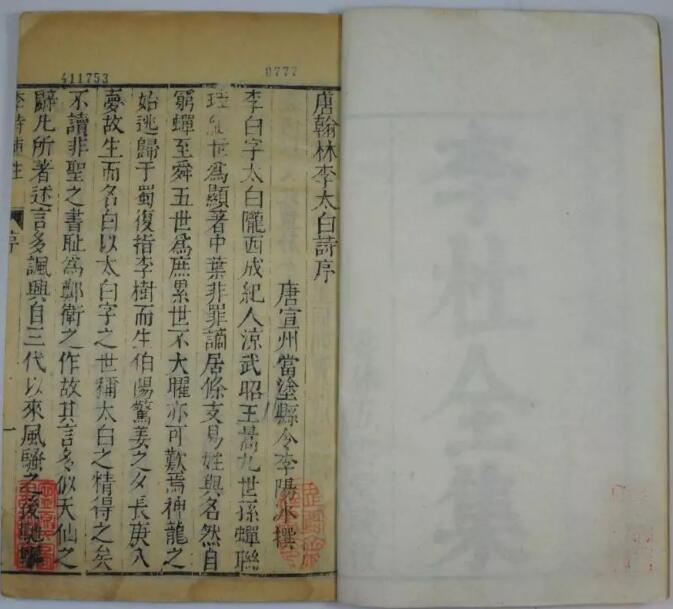 411753
0777
唐翰林李太白詩序
唐宣州當塗縣令李陽冰撰
李白字太白隴西成紀人涼武昭王暠九世孫蟬聯
珪組世爲顯著中葉非罪謫居條支易姓與名然自
窮蟬至舜五世爲庶累世不大曜亦可歎焉神龍之
始逃歸于蜀復指李樹而生伯陽驚姜之夕長庚入
夢故生而名白以太白字之世稱太白之精得之矣
不讀非聖之書恥爲鄭衛之作故其言多似天仙之
辭凡所著述言多諷興自三代以來風騷之後馳驅
序
一